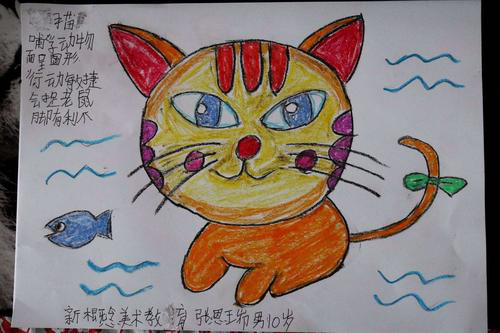 猫
哺乳动物
面呈圆形
行动敏捷
会捉老鼠
脚有利爪
新概念美术教育 张恩 男10岁